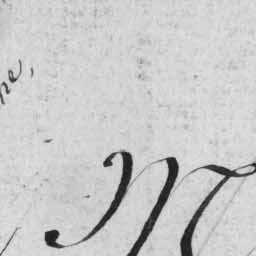 ne,
M